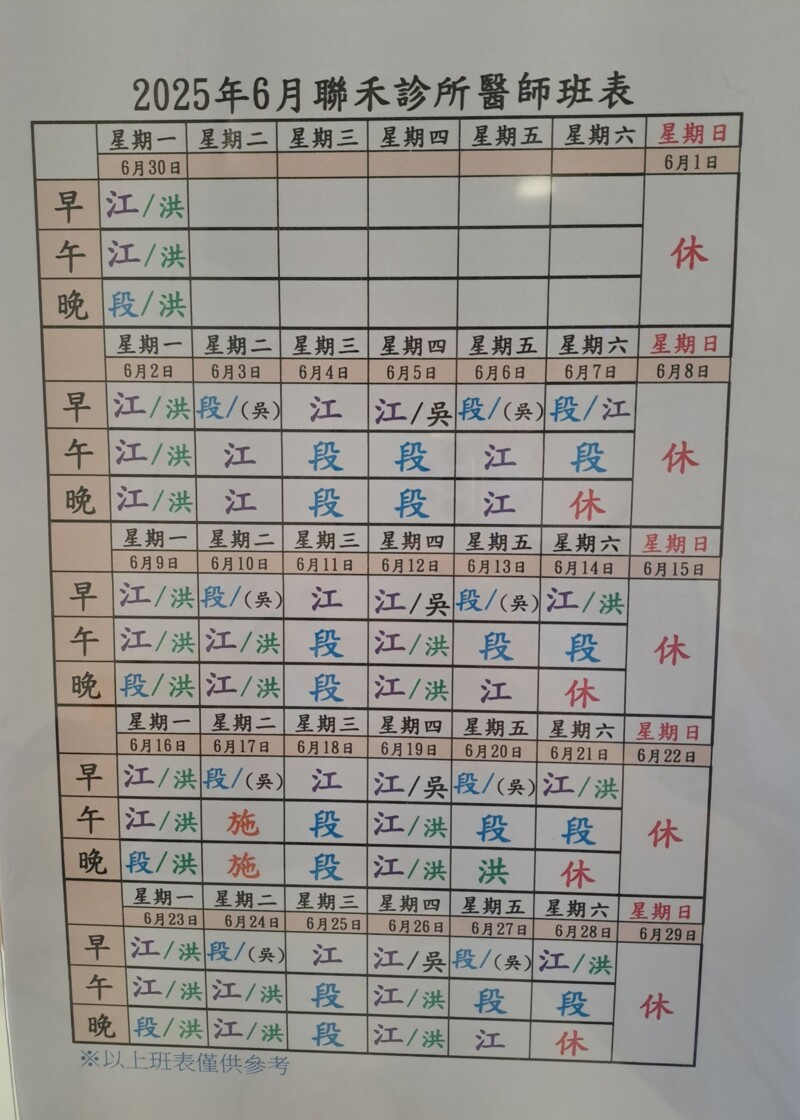 2025年6月聯禾診所醫師班表
星期一 星期二 星期三 星期四 星期五 星期六 星期日
6月30日 6月1日
早 江/洪 休
午 江/洪
晚 段/洪
星期一 星期二 星期三 星期四 星期五 星期六 星期日
6月2日 6月3日 6月4日 6月5日 6月6日 6月7日 6月8日
早 江/洪 段/(吳) 江 江/吳 段/(吳) 段/江 休
午 江/洪 江 段 段 江 段
晚 江/洪 江 段 段 江 休
星期一 星期二 星期三 星期四 星期五 星期六 星期日
6月9日 6月10日 6月11日 6月12日 6月13日 6月14日 6月15日
早 江/洪 段/(吳) 江 江/吳 段/(吳) 江/洪 休
午 江/洪 江/洪 段 江/洪 段 段
晚 段/洪 江/洪 段 江/洪 江 休
星期一 星期二 星期三 星期四 星期五 星期六 星期日
6月16日 6月17日 6月18日 6月19日 6月20日 6月21日 6月22日
早 江/洪 段/(吳) 江 江/吳 段/(吳) 江/洪 休
午 江/洪 施 段 江/洪 段 段
晚 段/洪 施 段 江/洪 洪 休
星期一 星期二 星期三 星期四 星期五 星期六 星期日
6月23日 6月24日 6月25日 6月26日 6月27日 6月28日 6月29日
早 江/洪 段/(吳) 江 江/吳 段/(吳) 江/洪 休
午 江/洪 江/洪 段 江/洪 段 段
晚 段/洪 江/洪 段 江/洪 江 休
※以上班表僅供參考